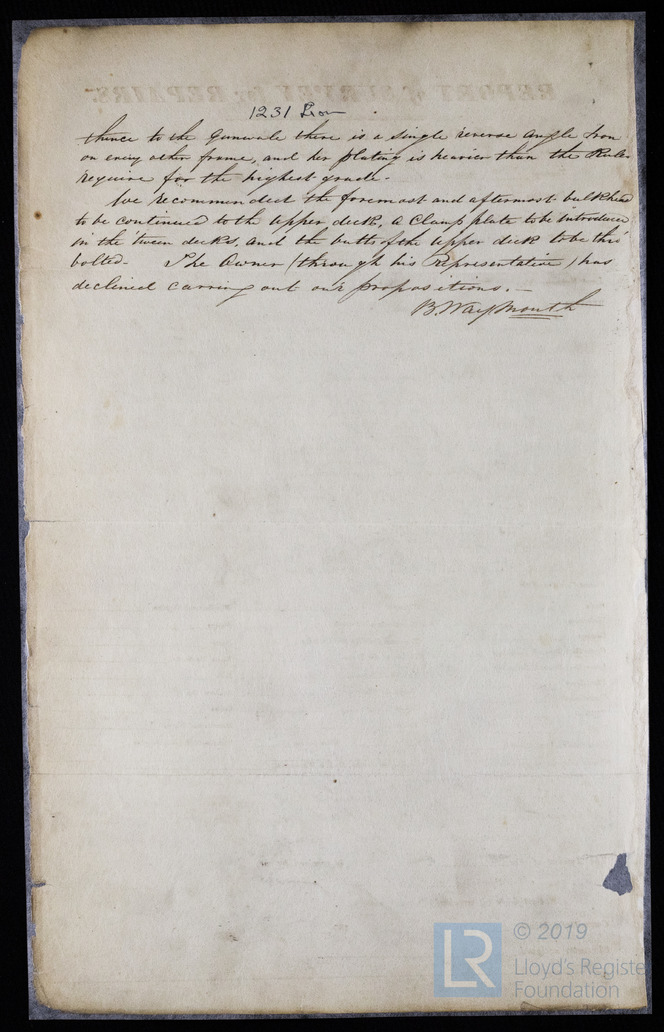 REPORT of SURVEY for REPAIRS.
1231 Iron
thence to the Gunwale there is a single reverse angle Iron
on every other frame, and her plating is heavier than the Rules
require for the highest grade.
We recommended the foremost and aftermost bulkhead
to be continued to the upper deck, a clamp plate to be introduced
in the 'tween decks, and the butts of the upper deck to be thro'
bolted. The Owner (through his Representative) has
declined carrying out our propositions.
B. Waymouth
LR
© 2019
Lloyd's Registe
Foundation